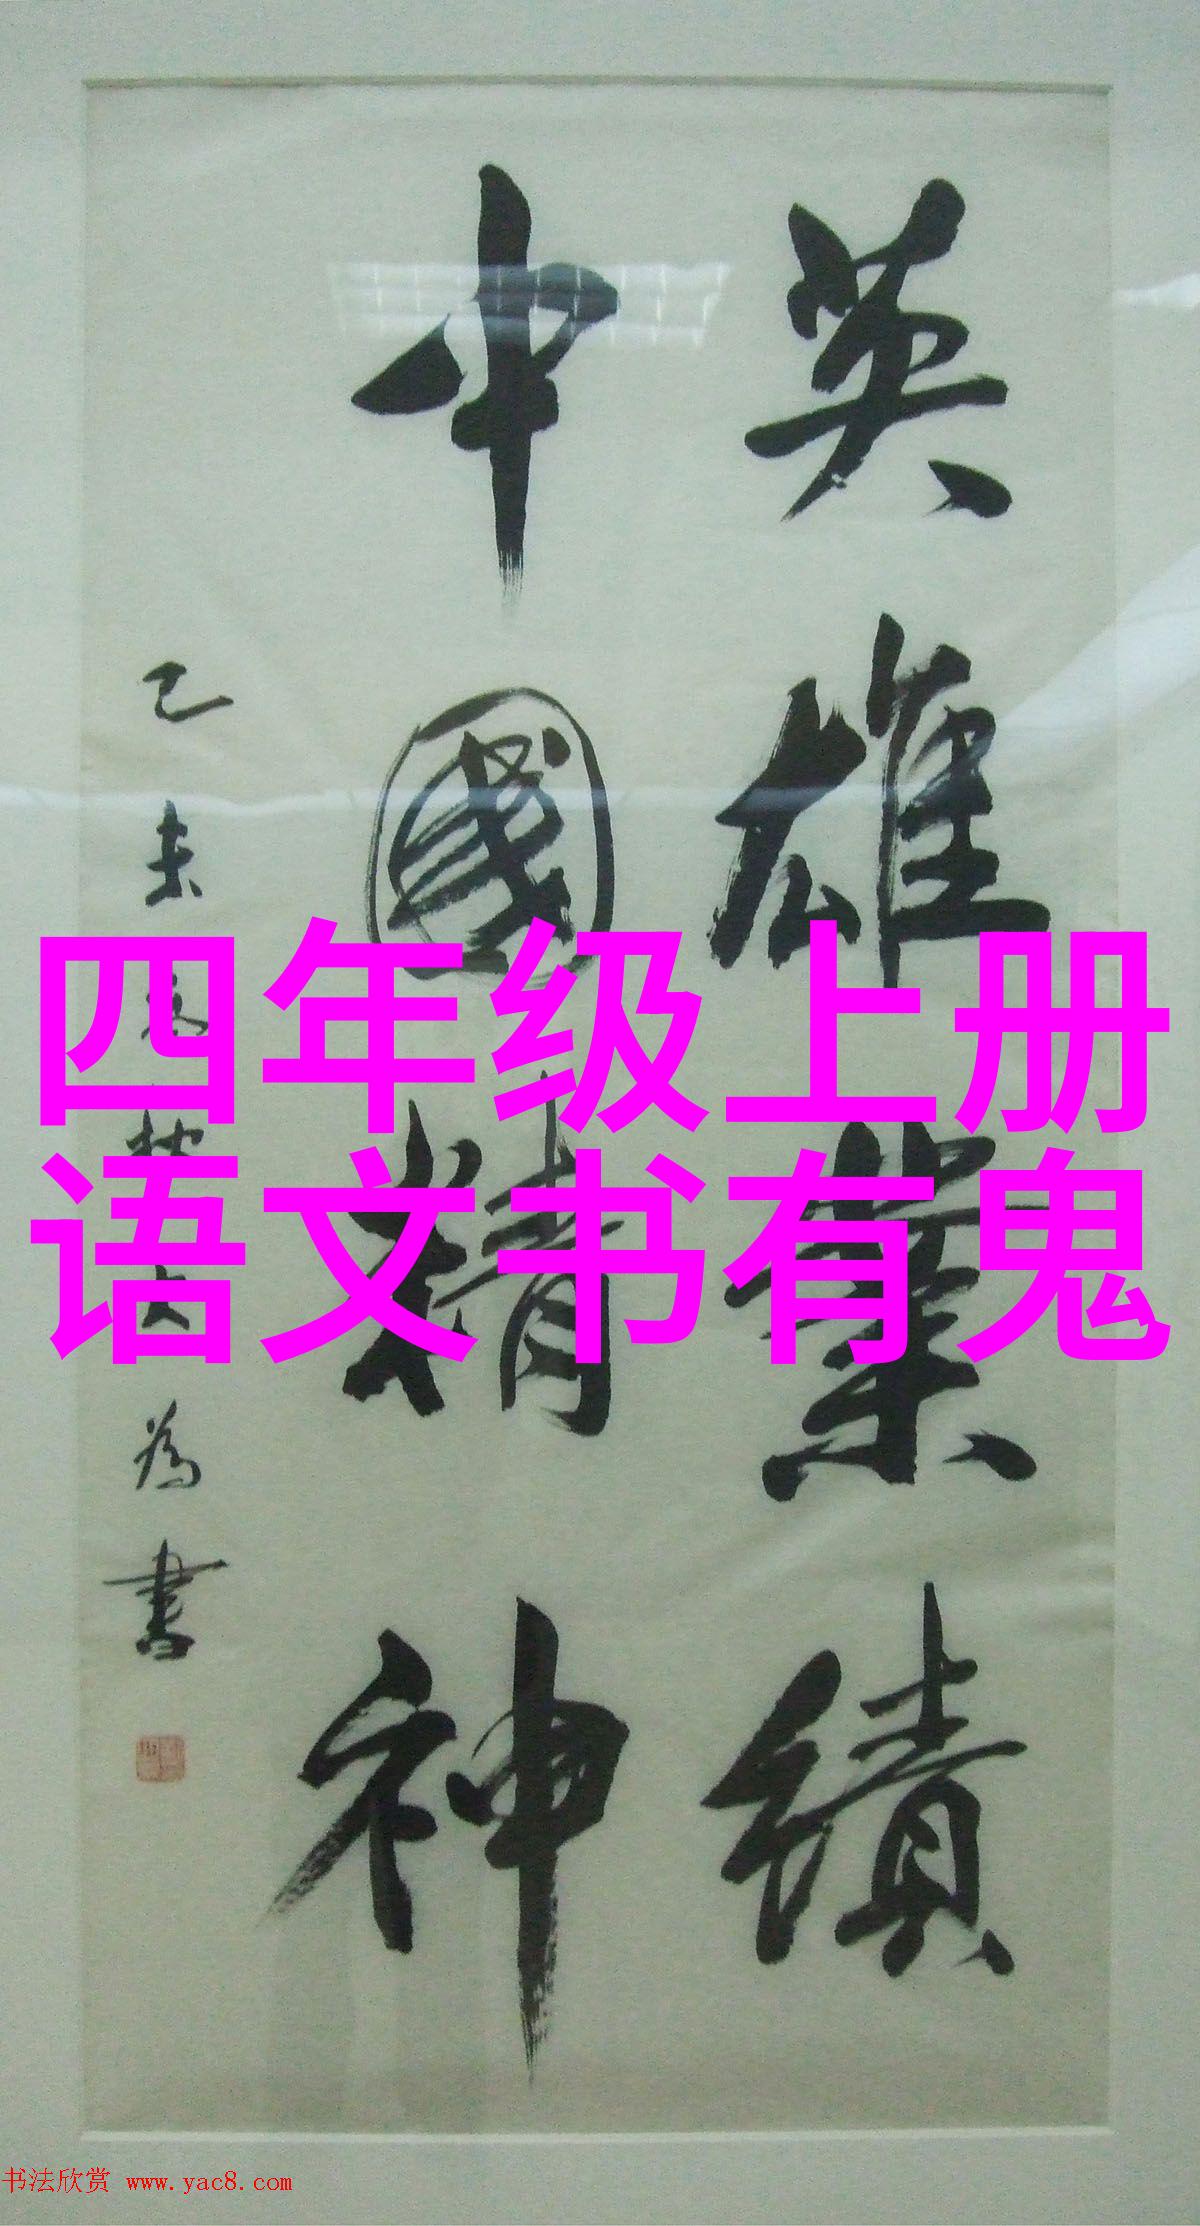 英雄業績
中國精神
乙未
為書
四年级上册
语文书有鬼
书法欣赏 www.yac8.com